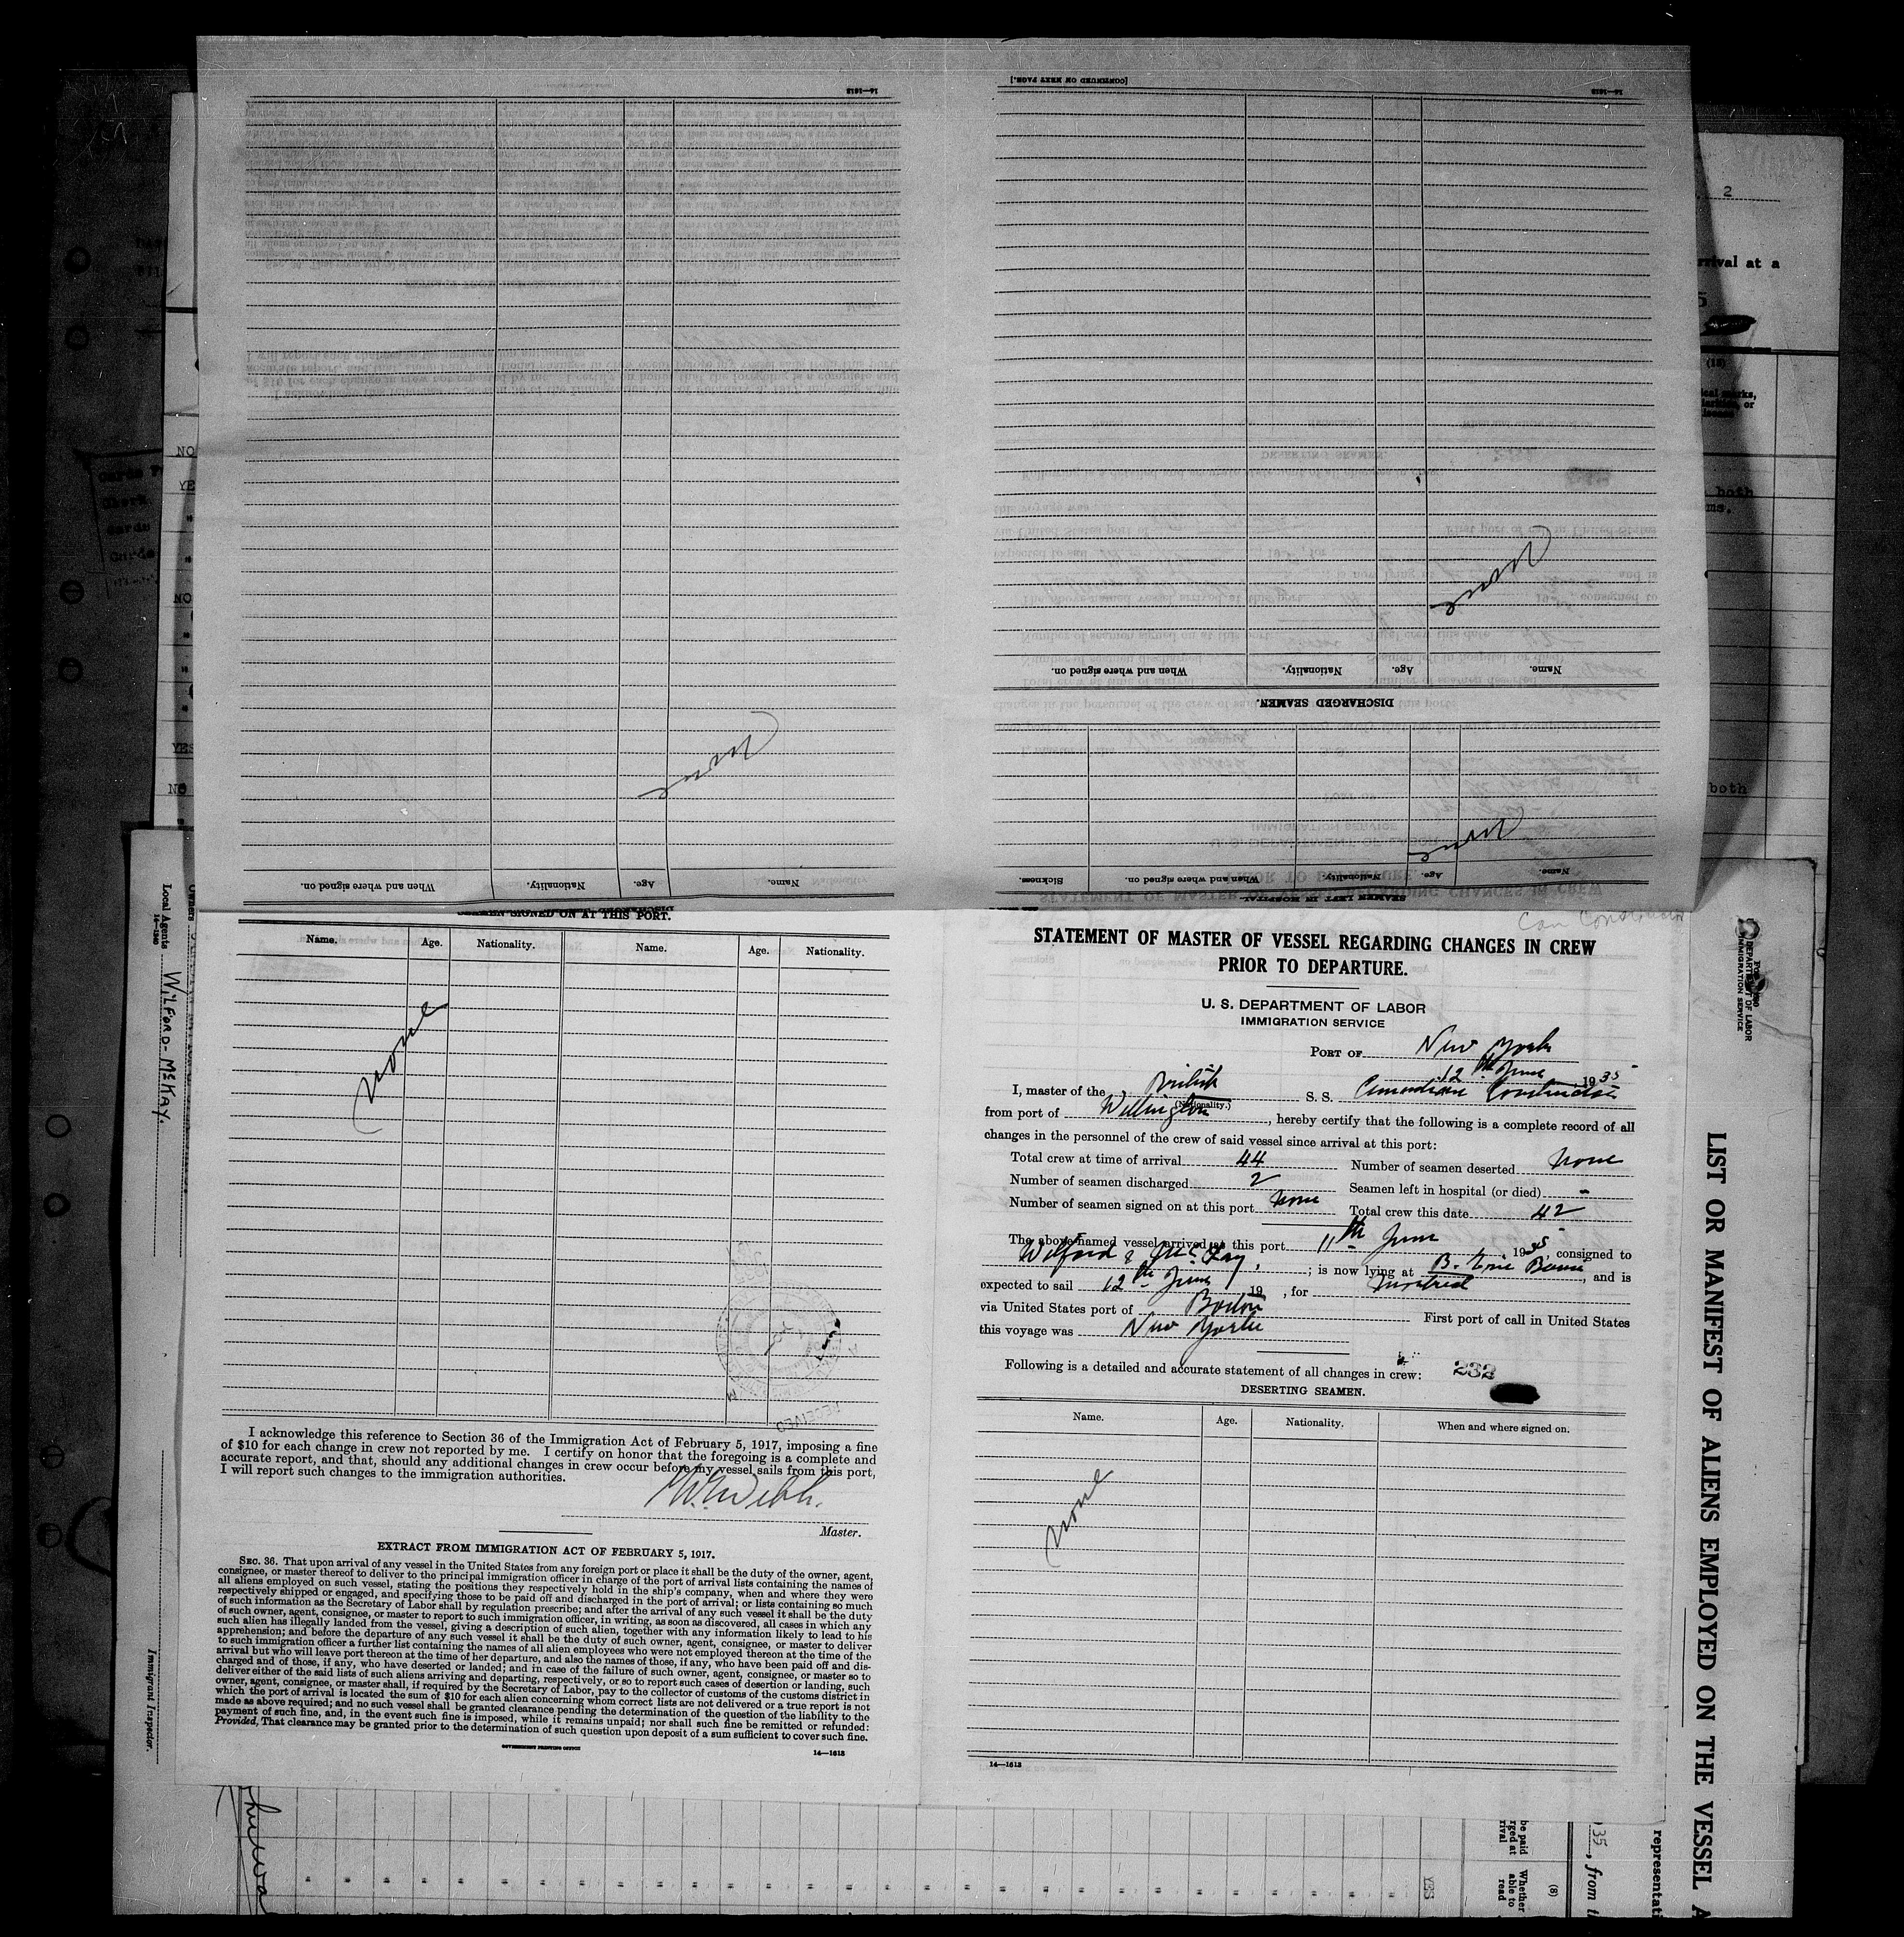 [CONTINUED ON NEXT PAGE.]
14—1613
14—1613
None
Name.
Age.
Nationality.
When and where signed on.
DISCHARGED SEAMEN.
None
None
Name.
Age.
Nationality.
When and where signed on.
Sickness.
SEAMEN LEFT IN HOSPITAL
Name.
Age.
Nationality.
When and where signed on.
2
arrival at a
(15)
both
ms.
both
NO
YES
NO
YES
NO
Local Agents WILFORD - McKAY.
14—1240
Owners
Immigrant Inspector.
SEAMEN SIGNED ON AT THIS PORT.
Name. Age. Nationality. Name. Age. Nationality.
None
RECEIVED
I acknowledge this reference to Section 36 of the Immigration Act of February 5, 1917, imposing a fine
of $10 for each change in crew not reported by me. I certify on honor that the foregoing is a complete and
accurate report, and that, should any additional changes in crew occur before my vessel sails from this port,
I will report such changes to the immigration authorities.
Webb.
Master.
EXTRACT FROM IMMIGRATION ACT OF FEBRUARY 5, 1917.
SEC. 36. That upon arrival of any vessel in the United States from any foreign port or place it shall be the duty of the owner, agent,
consignee, or master thereof to deliver to the principal immigration officer in charge of the port of arrival lists containing the names of
all aliens employed on such vessel, stating the positions they respectively hold in the ship's company, when and where they were
respectively shipped or engaged, and specifying those to be paid off and discharged in the port of arrival; or lists containing so much
of such information as the Secretary of Labor shall by regulation prescribe; and after the arrival of any such vessel it shall be the duty
of such owner, agent, consignee, or master to report to such immigration officer, in writing, as soon as discovered, all cases in which any
such alien has illegally landed from the vessel, giving a description of such alien, together with any information likely to lead to his
apprehension; and before the departure of any such vessel it shall be the duty of such owner, agent, consignee, or master to deliver
to such immigration officer a further list containing the names of all alien employees who were not employed thereon at the time of the
arrival but who will leave port thereon at the time of her departure, and also the names of those, if any, who have been paid off and dis-
charged and of those, if any, who have deserted or landed; and in case of the failure of such owner, agent, consignee, or master so to
deliver either of the said lists of such aliens arriving and departing, respectively, or so to report such cases of desertion or landing, such
owner, agent, consignee, or master shall, if required by the Secretary of Labor, pay to the collector of customs of the customs district in
which the port of arrival is located the sum of $10 for each alien concerning whom correct lists are not delivered or a true report is not
made as above required; and no such vessel shall be granted clearance pending the determination of the question of the liability to the
payment of such fine, and, in the event such fine is imposed, while it remains unpaid; nor shall such fine be remitted or refunded:
Provided, That clearance may be granted prior to the determination of such question upon deposit of a sum sufficient to cover such fine.
GOVERNMENT PRINTING OFFICE 14—1613
Can Constructor
STATEMENT OF MASTER OF VESSEL REGARDING CHANGES IN CREW
PRIOR TO DEPARTURE.
U. S. DEPARTMENT OF LABOR
IMMIGRATION SERVICE
PORT OF New York
12th June, 1935
I, master of the British S. S. Canadian Constructor
(Nationality.)
from port of Wellington, hereby certify that the following is a complete record of all
changes in the personnel of the crew of said vessel since arrival at this port:
Total crew at time of arrival 44 Number of seamen deserted None
Number of seamen discharged 2 Seamen left in hospital (or died) -
Number of seamen signed on at this port None Total crew this date 42
The above-named vessel arrived at this port 11th June 1935, consigned to
Wilford & McKay, ; is now lying at B. Erie Basin, and is
expected to sail 12th June 19 , for Montreal
via United States port of Boston First port of call in United States
this voyage was New York
Following is a detailed and accurate statement of all changes in crew: 232
DESERTING SEAMEN.
Name. Age. Nationality. When and where signed on.
None
14—1613
DEPARTMENT OF LABOR
IMMIGRATION SERVICE
LIST OR MANIFEST OF ALIENS EMPLOYED ON THE VESSEL A
YES
Whether
able to
read
(8)
35, from